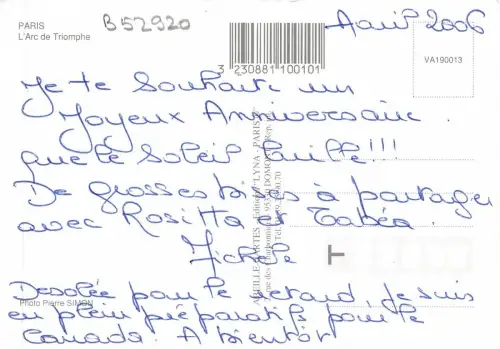 PARIS
L'Arc de Triomphe
B52920
Aout 2006
3 230881 100101
VA190013
Je te souhaite un
Joyeux Anniversaire
que le soleil brille!!!
De grosses bises à partager
avec Rositta et Tabéa.
Michèle
ABEILLE-CARTES - Editions "LYNA - PARIS"
Photo Pierre SIMON
Desolée pour le retard, je suis
en plein préparatifs pour le
Canada. A bientôt